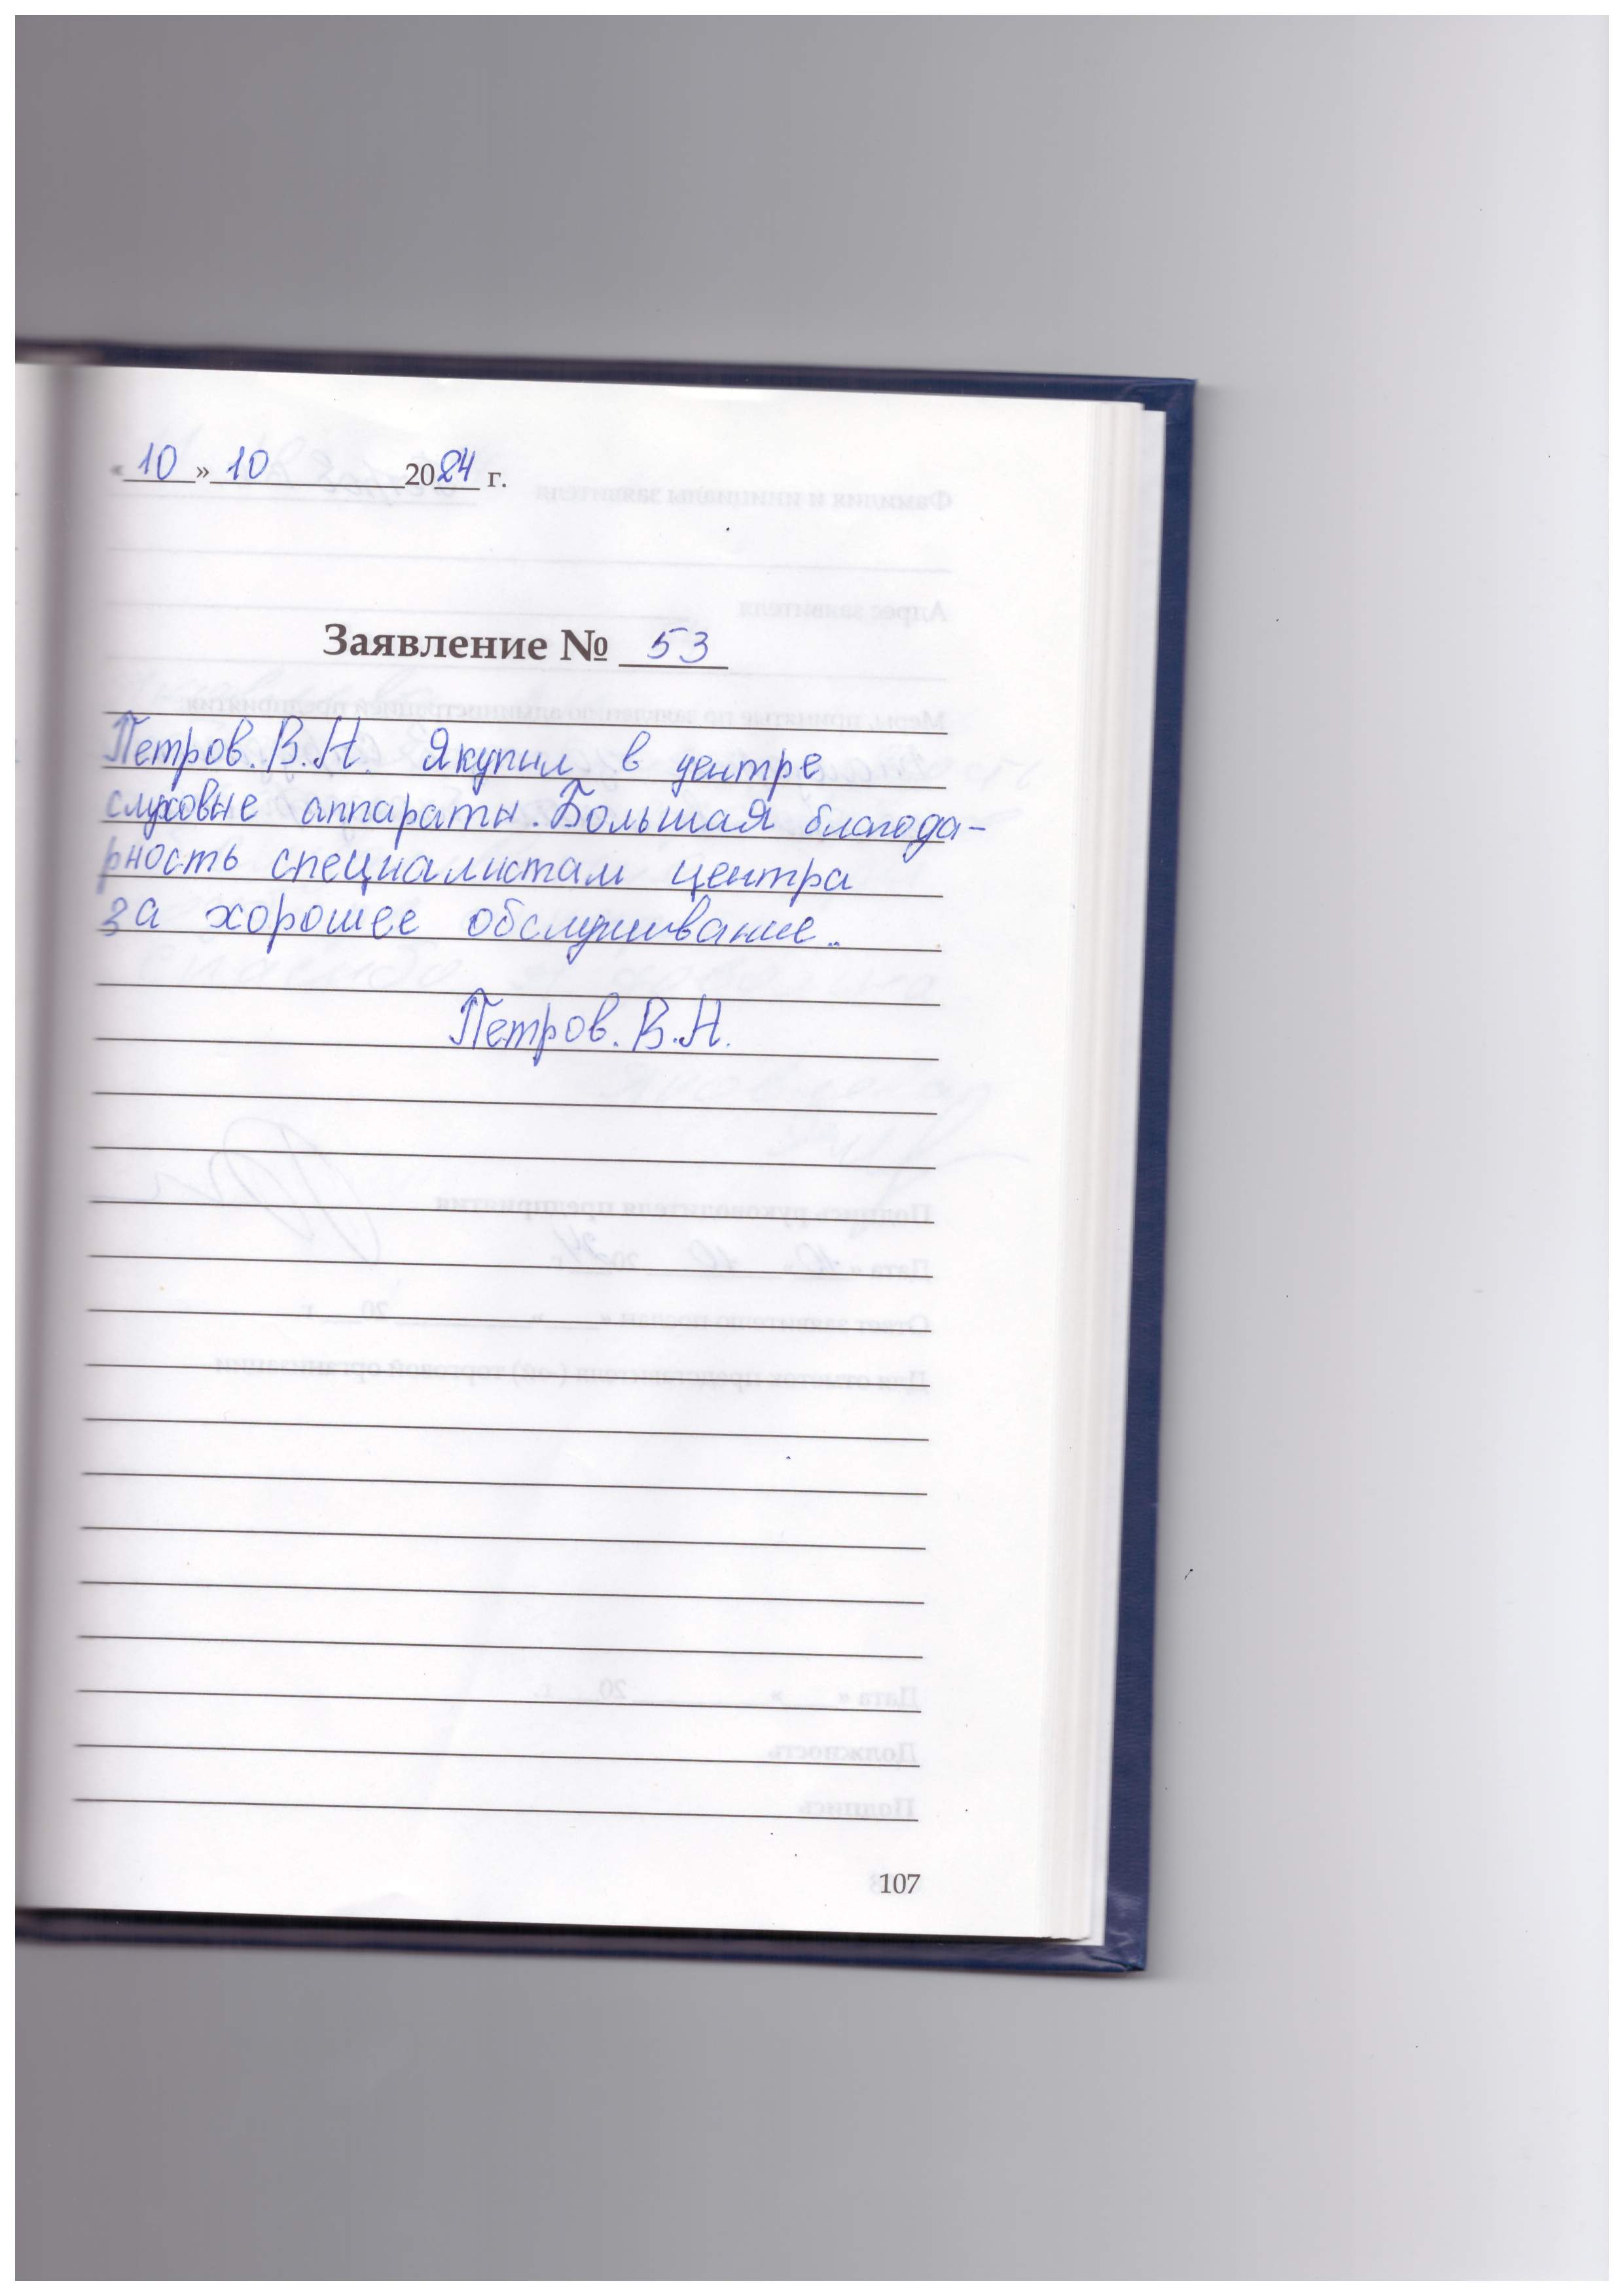 «10» 10 2024 г.
Заявление № 53
Петров. В.Н. Я купил в центре
слуховые аппараты. Большая благода-
рность специалистам центра
за хорошее обслуживание..
Петров. В.Н.
107